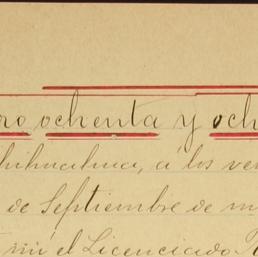 ro ochenta y och
hihuahua, á los ve
de Septiembre de m
mí el Licenciado